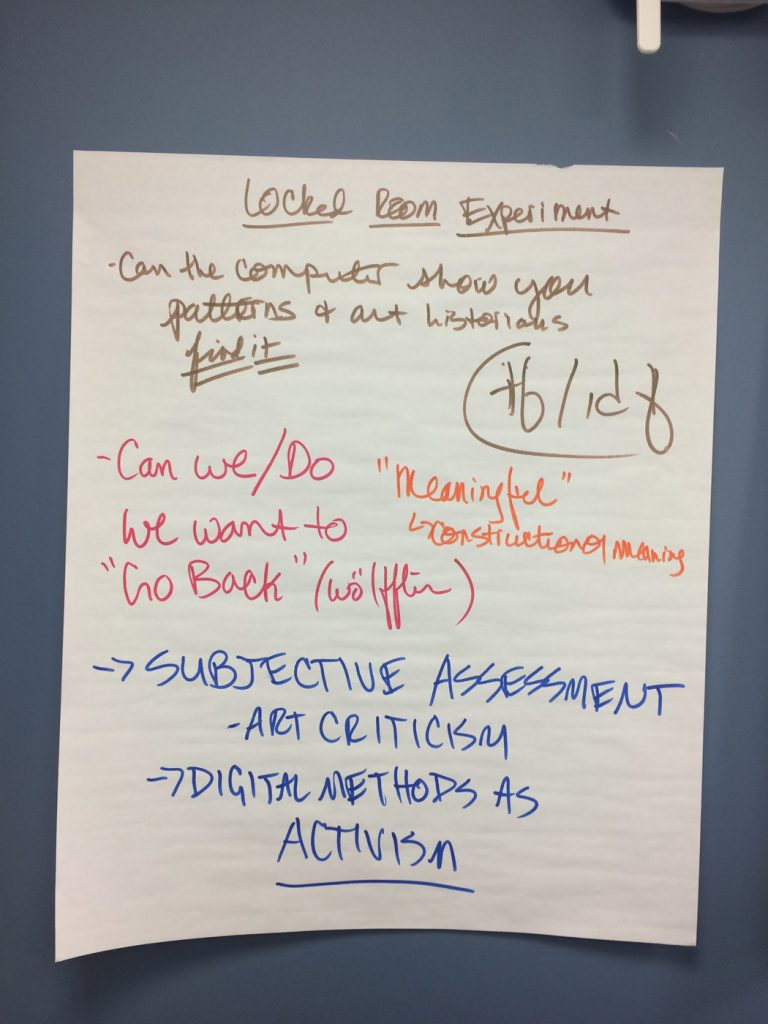 Locked Room Experiment
-Can the computer show you
patterns & art historians
find it
tf/idf
-Can we/Do
we want to
"Go Back" (wölfflin)
"Meaningful"
↳construction of meaning
-> SUBJECTIVE ASSESSMENT
-ART CRITICISM
-> DIGITAL METHODS AS
ACTIVISM